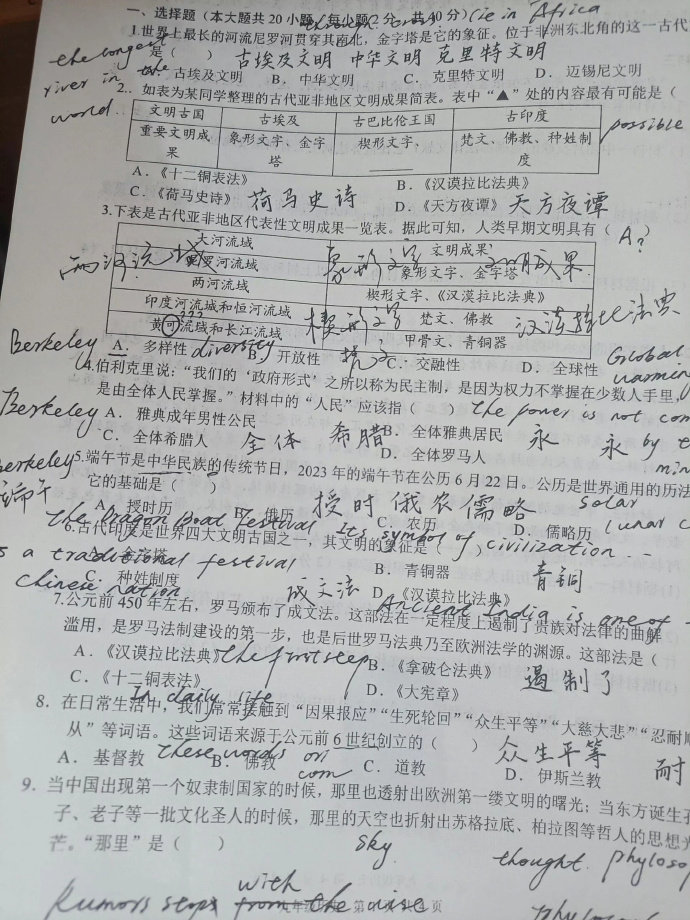 一、选择题（本大题共 20 小题，每小题 2 分，共 40 分）lie in Africa
1.世界上最长的河流尼罗河贯穿其南北，金字塔是它的象征。位于非洲东北角的这一古代
the longest 是（ ） 古埃及文明 中华文明 克里特文明
river in the A. 古埃及文明 B. 中华文明 C. 克里特文明 D. 迈锡尼文明
world. 2.. 如表为某同学整理的古代亚非地区文明成果简表。表中“▲”处的内容最有可能是（
文明古国 古埃及 古巴比伦王国 古印度 possible
重要文明成果 象形文字、金字塔 楔形文字、____ 梵文、佛教、种姓制度
A.《十二铜表法》 B.《汉谟拉比法典》
C.《荷马史诗》 荷马史诗 D.《天方夜谭》 天方夜谭
3.下表是古代亚非地区代表性文明成果一览表。据此可知，人类早期文明具有（ A? ）
大河流域 文明成果
两河流域 尼罗河流域 象形文字 象形文字、金字塔 文明成果
两河流域 楔形文字、《汉谟拉比法典》
印度河流域和恒河流域 楔形文字 梵文、佛教 汉谟拉比法典
黄河流域和长江流域 甲骨文、青铜器
Berkeley A. 多样性 diversity B. 开放性 C. 交融性 D. 全球性 Global
warmin
4.伯利克里说：“我们的‘政府形式’之所以称为民主制，是因为权力不掌握在少数人手里，
是由全体人民掌握。”材料中的“人民”应该指（ ） the power is not con
Berkeley A. 雅典成年男性公民 B. 全体雅典居民
C. 全体希腊人 全体 希腊 D. 全体罗马人 永 永 by
Berkeley 5.端午节是中华民族的传统节日，2023 年的端午节在公历 6 月 22 日。公历是世界通用的历法
端午 它的基础是（ ）
A. 授时历 B. 俄历 授时俄农儒略 C. 农历 D. 儒略历 solar lunar
the Dragon Boat Festival Its symbol of civilization...
6.古代印度是世界四大文明古国之一，其文明的象征是（ ）
is a traditional festival A. 金字塔 B. 青铜器 青铜
Chinese nation C. 种姓制度 成文法 D.《汉谟拉比法典》
Ancient India is one of
7.公元前 450 年左右，罗马颁布了成文法。这部法在一定程度上遏制了贵族对法律的曲解
滥用，是罗马法制建设的第一步，也是后世罗马法典乃至欧洲法学的渊源。这部法是（
A.《汉谟拉比法典》 the first step B.《拿破仑法典》 遏制了
C.《十二铜表法》 D.《大宪章》
In daily life
8. 在日常生活中，我们常常接触到“因果报应”“生死轮回”“众生平等”“大慈大悲”“忍耐顺
从”等词语。这些词语来源于公元前 6 世纪创立的（ ） 众生平等 耐
A. 基督教 these words B. 佛教 ori com C. 道教 D. 伊斯兰教
9. 当中国出现第一个奴隶制国家的时候，那里也透射出欧洲第一缕文明的曙光；当东方诞生孔
子、老子等一批文化圣人的时候，那里的天空也折射出苏格拉底、柏拉图等哲人的思想光
芒。“那里”是（ ） sky thought. phyloso
Rumors stops with from the wise